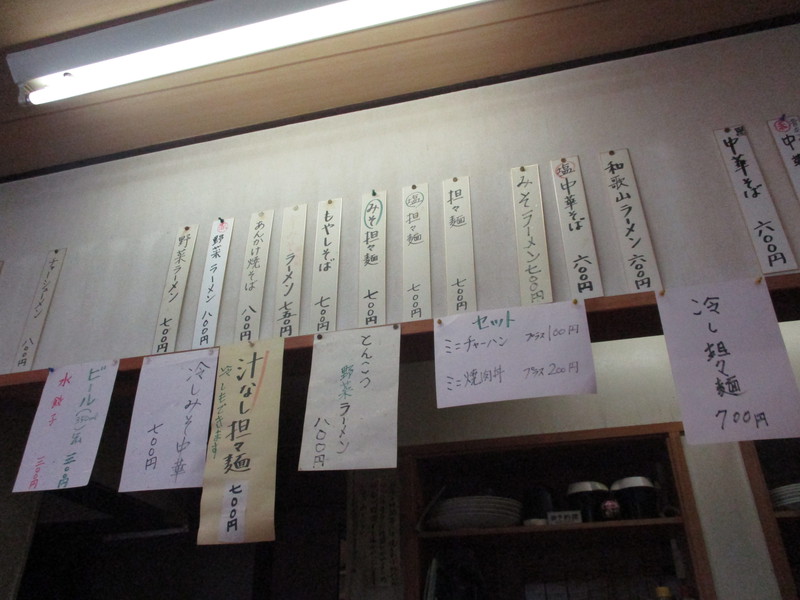 中華そば 六〇〇円
和歌山ラーメン 六〇〇円
塩 中華そば 六〇〇円
みそラーメン 七〇〇円
担々麺 七〇〇円
塩 担々麺 七〇〇円
みそ 担々麺 七〇〇円
もやしそば 七〇〇円
ラーメン 七五〇円
あんかけ焼そば 八〇〇円
野菜ラーメン 八〇〇円
野菜ラーメン 七〇〇円
チャーシューメン
冷し担々麺
700円
セット
ミニチャーハン プラス100円
ミニ焼肉丼 プラス200円
とんこつ
野菜ラーメン
八〇〇円
汁なし担々麺
冷しもできます!
七〇〇円
冷しみそ中華
七〇〇円
ビール
水餃子 三〇〇円